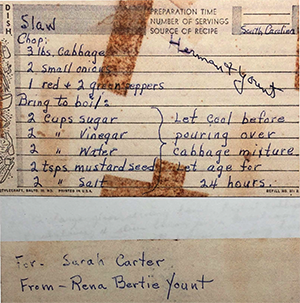 DISH
Slaw
PREPARATION TIME
NUMBER OF SERVINGS
SOURCE OF RECIPE
South Carolina
Herman & Yount
Chop:
3 lbs. Cabbage
2 small onions
1 red + 2 green peppers
Bring to boil:
2 cups sugar
2 " Vinegar
2 " Water
2 tsps mustard seed
2 " Salt
Let Cool before
pouring over
cabbage mixture
Let age for
24 hours.
PRINTED IN U.S.A.
For- Sarah Carter
From- Rena Bertie Yount